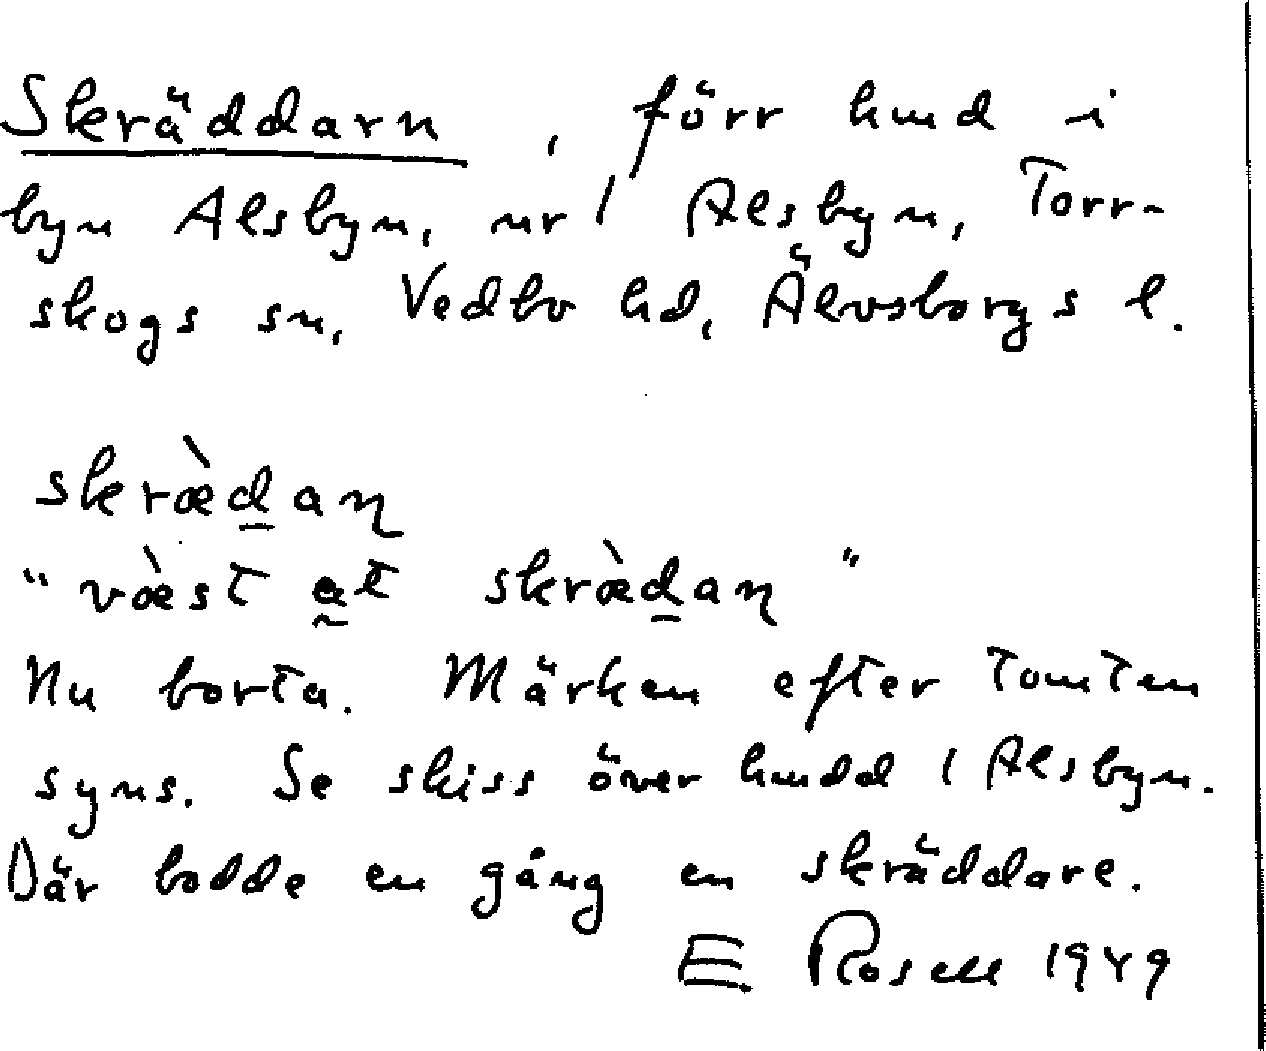 Skräddarn, förr hmd i
byn Alsbyn, nr 1 Alsbyn, Torr-
skogs sn, Vedbo hd, Älvsborgs l.
skræ̀d̲an
"væ̀st at skræ̀d̲an"
Nu borta. Märken efter tomten
syns. Se skiss över hmdd 1 Alsbyn.
Där bodde en gång en skräddare.
E Rosell 1949